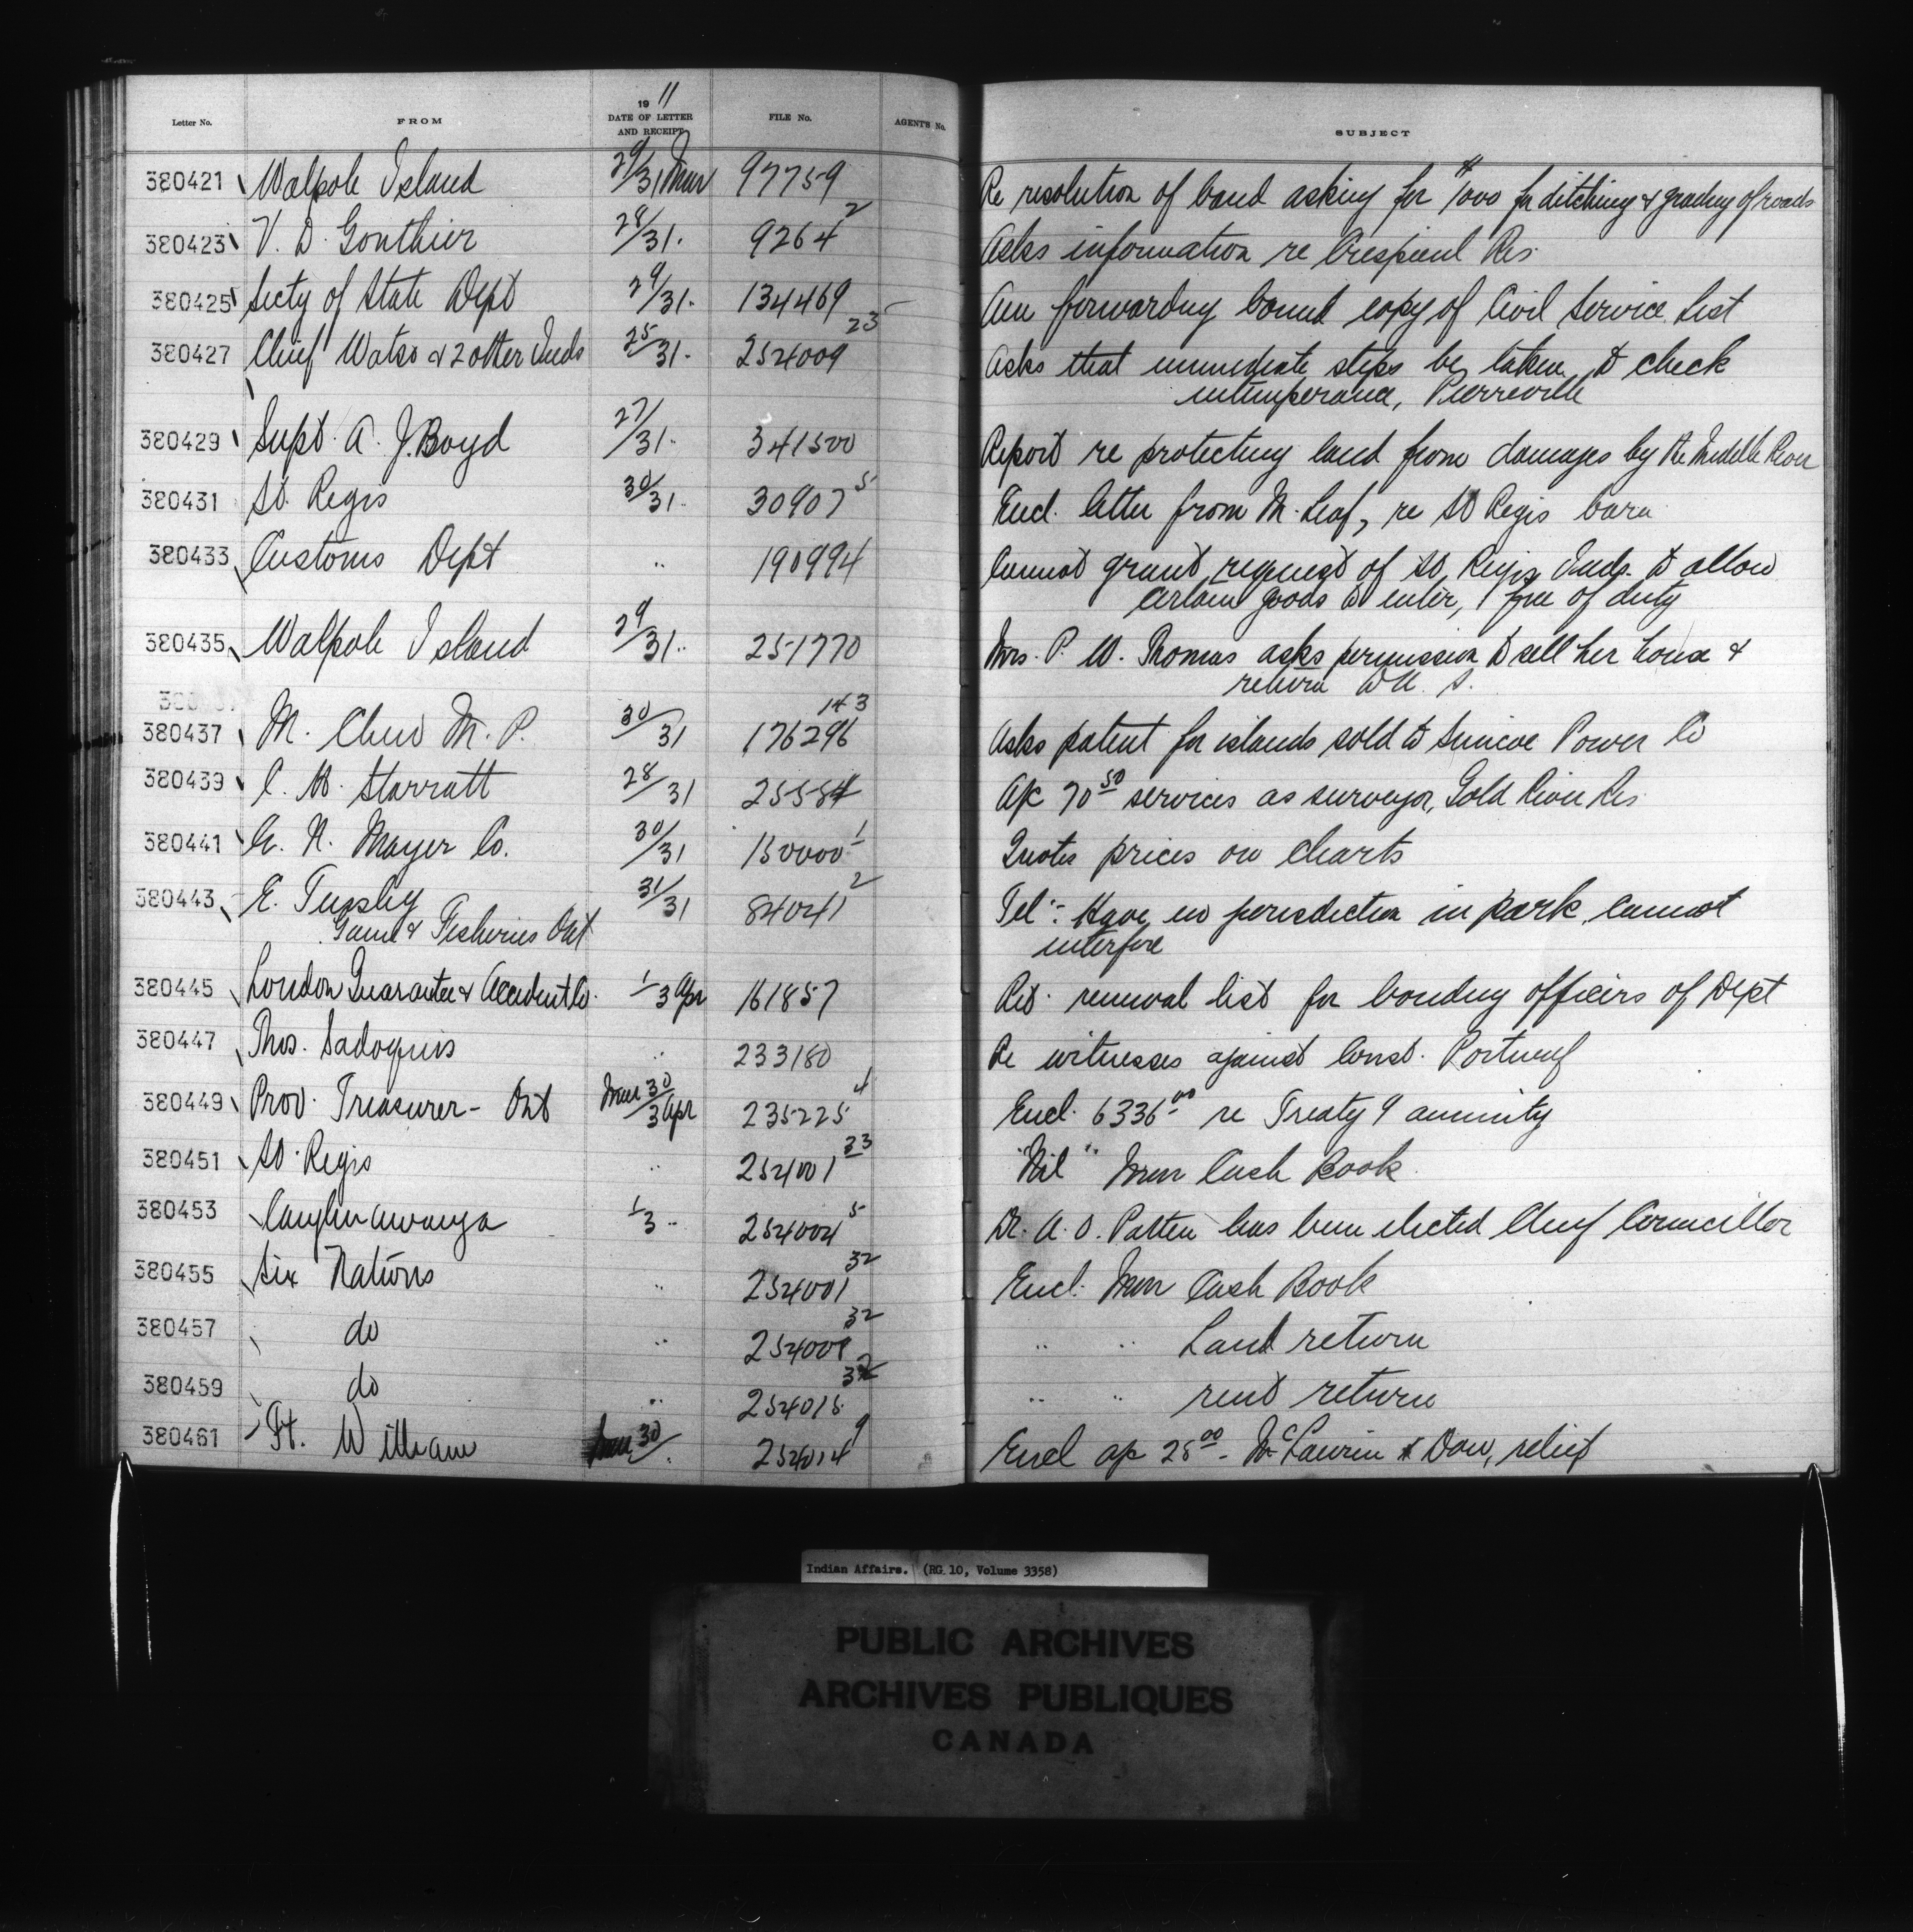 Letter No. FROM 1911 DATE OF LETTER AND RECEIPT FILE No. AGENT'S No. SUBJECT
380421 Walpole Island 29/31 Mar 97759 Re resolution of band asking for $1000 for ditching & grading of roads
380423 V. D. Gonthier 28/31 9264 2 Asks information re Crespieul Res
380425 Secty of State Dept 29/31 134469 Am forwarding bound copy of Civil Service List
380427 Chief Watso & 2 other Inds 25/31 254009 23 Asks that immediate steps be taken to check
intemperance, Pierreville
380429 Supt. A. J. Boyd 27/31 341500 Report re protecting land from damages by the Middle River
380431 St. Regis 30/31 30907 5 Encl. letter from M. Leaf, re St Regis barn
380433 Customs Dept " 190994 Cannot grant request of St. Regis Inds. to allow
certain goods to enter, free of duty
380435 Walpole Island 29/31 251770 Mrs. P. W. Thomas asks permission to sell her house &
return to U. S.
380437 M. Chew M. P. 30/31 176296 143 Asks patent for islands sold to Simcoe Power Co
380439 C. B. Starratt 28/31 25584 A/c 70 50 services as surveyor, Gold River Res
380441 N. Mayer Co. 30/31 150000 1 Quotes prices on charts
380443 E. Tinsley 31/31 84041 2 Tel:- Have no jurisdiction in park cannot
Game & Fisheries Ont interfere
380445 London Guarantee & Accident Co. 1/3 Apr 161857 Ret. renewal list for bonding officers of Dept
380447 Thos. Sadoquis " 233180 Re witnesses against Const. Portneuf
380449 Prov. Treasurer - Ont Mar 30/3 Apr 235225 4 Encl. 6336 00 re Treaty 9 annuity
380451 St. Regis " 254001 33 "Nil" Mar Cash Book
380453 Caughnawaga 1/3 " 254004 5 Dr. A. O. Patton has been elected Chief Councillor
380455 Six Nations " 254001 32 Encl. Mar Cash Book
380457 do " 254009 32 " " Land return
380459 do " 254015 32 " " rent return
380461 Ft. William Mar 30/ 254014 9 Encl a/c 28 00 - McLaurin & Dow, relief
Indian Affairs. (RG 10, Volume 3358)
PUBLIC ARCHIVES
ARCHIVES PUBLIQUES
CANADA